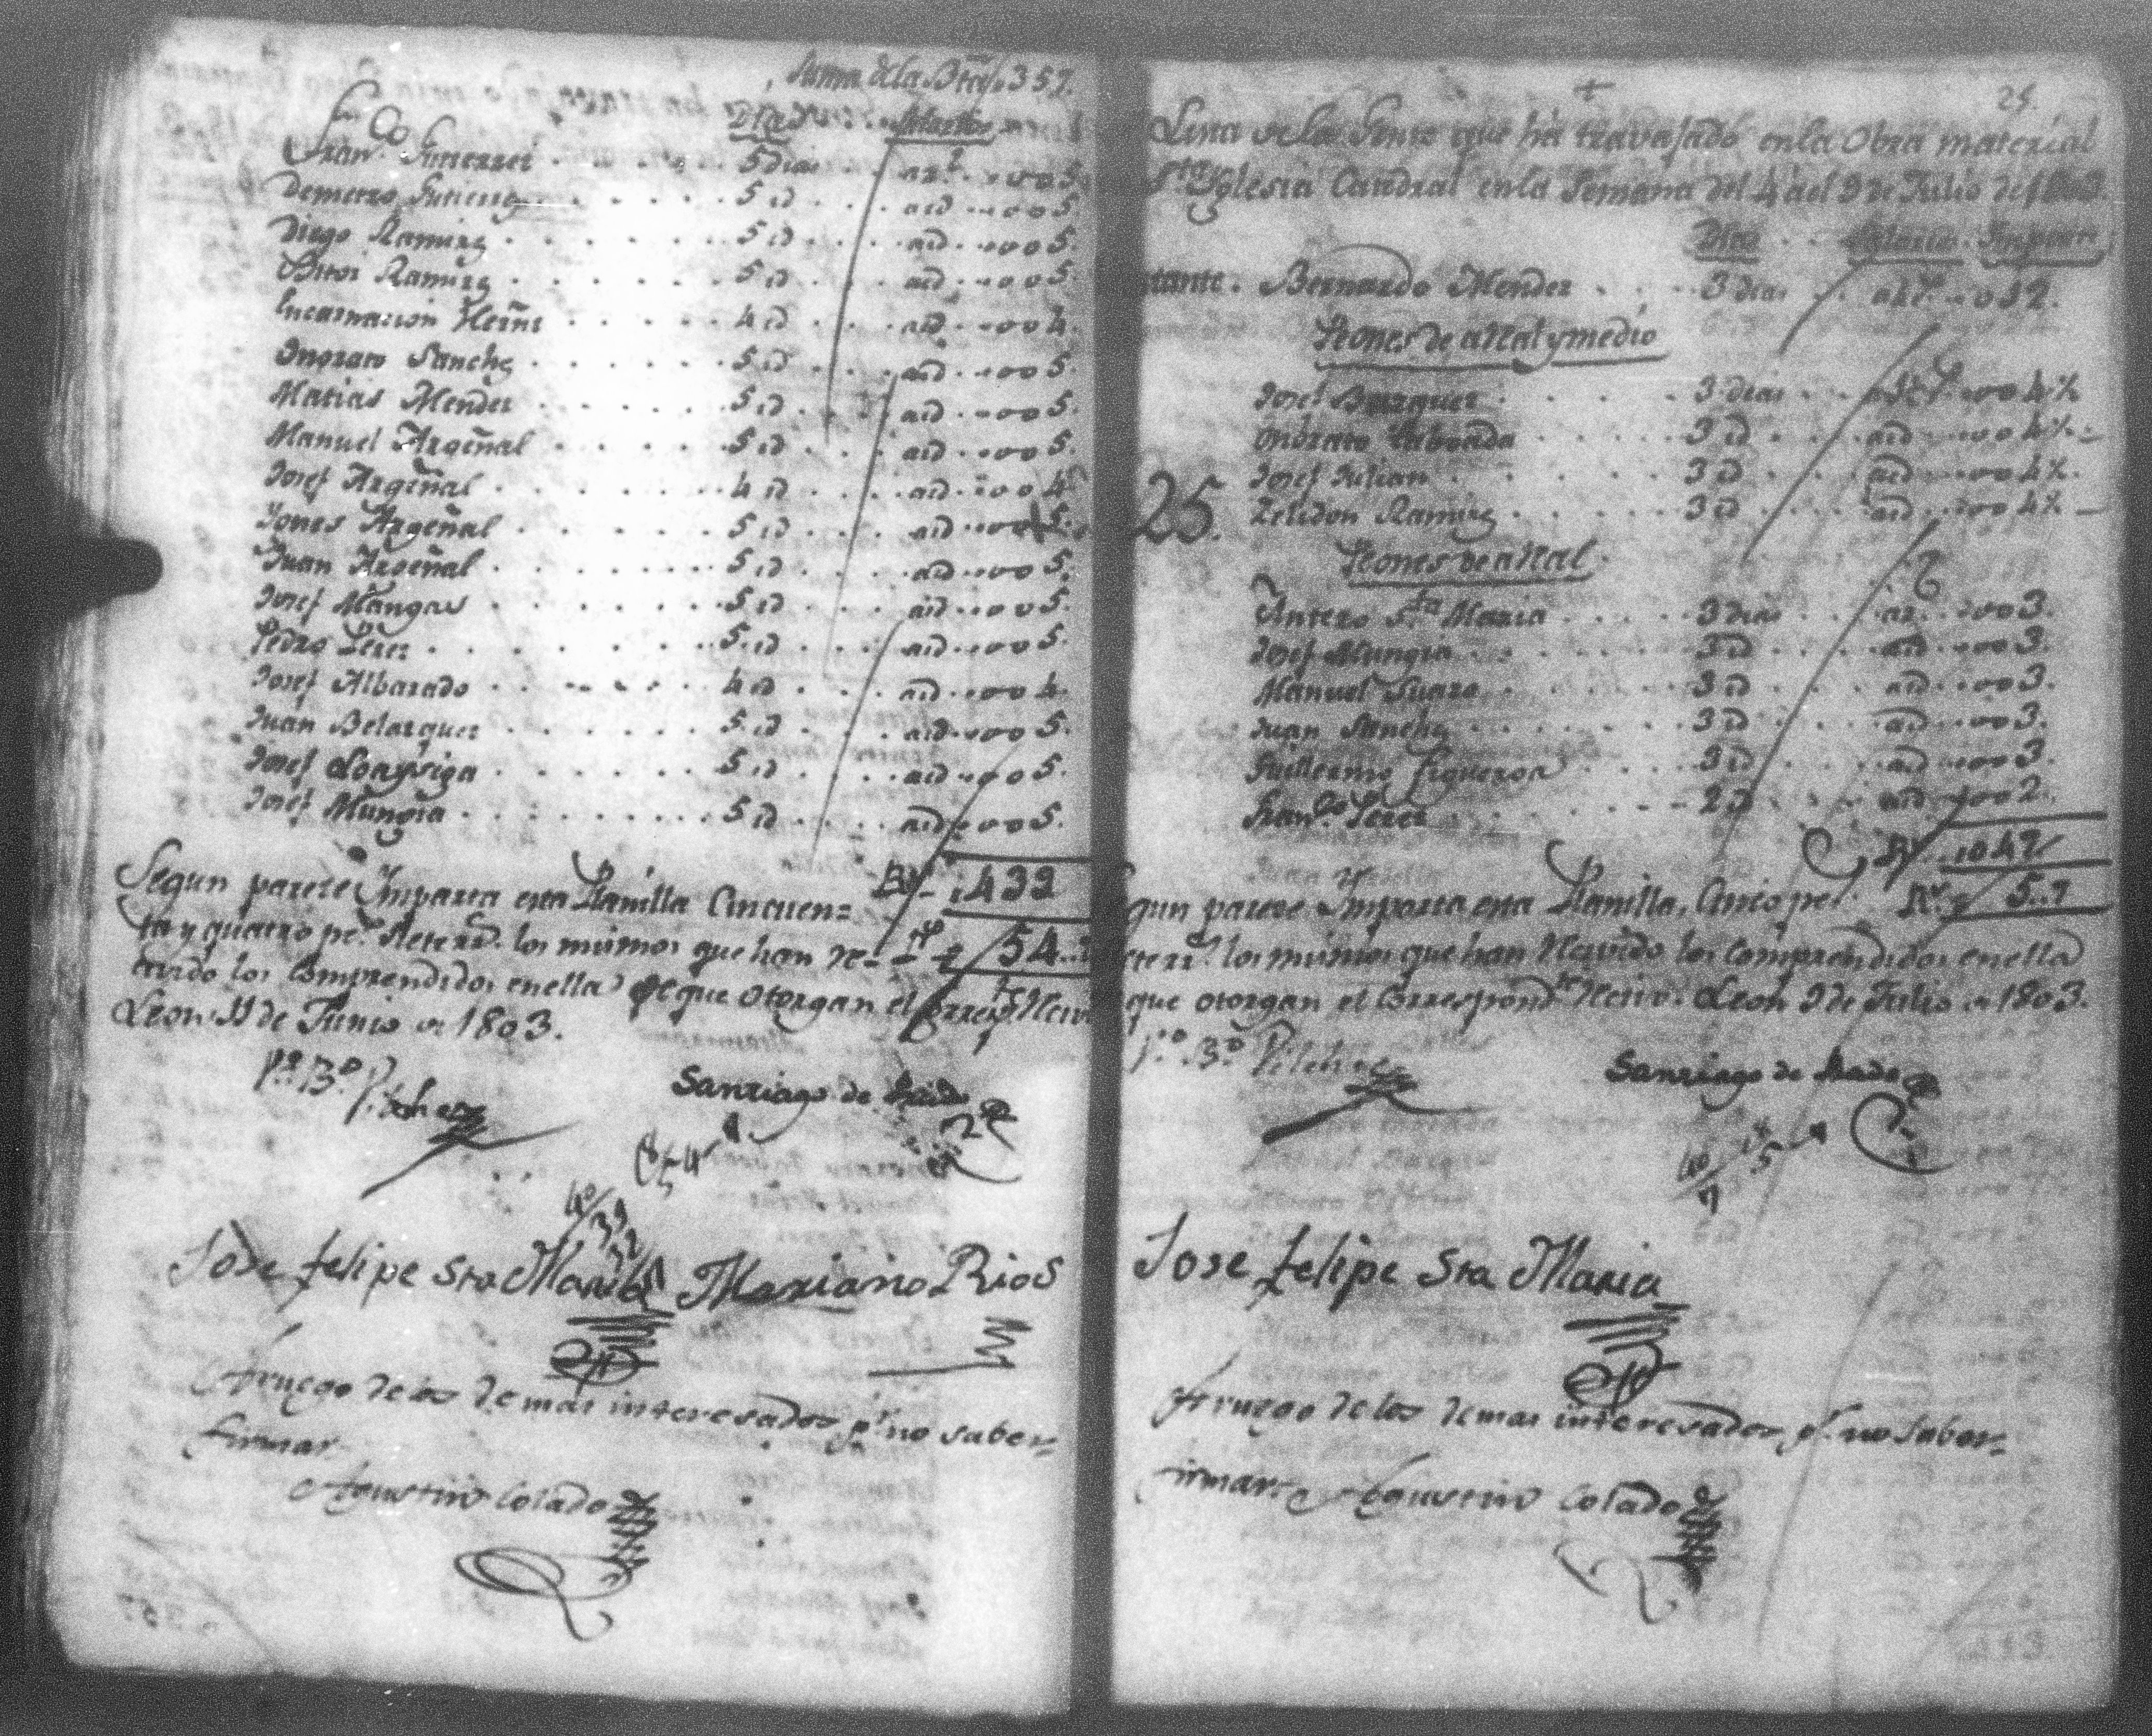 Suma dela Bta 357.
Dias Salario
Fran.co Gutierrez 5 dias ar.l 005
Demetrio Gutierrez 5 id aid 005.
Diego Ramirez 5 id aid 005.
Ramirez 5 id aid 005.
Encarnacion Herñz 4 id aid 004.
Onorato Sanchez 5 id aid 005.
Matias Mendez 5 id aid 005.
Manuel Argeñal 5 id aid 005.
Josef Argeñal 4 id aid 004
Argeñal 5 id aid 005.
Juan Argeñal 5 id aid 005.
Josef Mungia 5 id aid 005.
Pedro Perez 5 id aid 005.
Josef Albarado 4 id aid 004.
Juan Belazquez 5 id aid 005.
Josef Loaysiga 5 id aid 005.
Josef Mungia 5 id aid 005.
432
Segun parece Importa esta Planilla Cincuen=
ta y quatro ps. siete rrs. los mismos que han re-
54..
civido los Comprendidos en ella de que otorgan el
Leon 11 de Junio de 1803.
Po. Bo. Pilchez
Santiago de
Jose felipe Sta Maria Mariano Rios
A ruego de los demas interesados pr. no saber
firmar
Agustin Colado
+
25.
Lista de la Gente que ha travajado en la Obra material
Sta Yglesia Catedral en la Semana del 4 al 9 de Julio de 1803.
Dias Salario Importe
tante. Bernardo Mendez 3 dias 012.
Peones de a Real y medio
Josef Bazquez 3 dias 004½
Onorato Taboada 3 id aid 004½
Josef Julian 3 id aid 004½
25.
Zelidon Ramirez 3 id aid 004½
Peones de a Real
Antero Sta Maria 3 dias ar. 003.
Josef Mungia 3 id aid 003.
Manuel Suazo 3 id aid 003.
Juan Sanchez 3 id aid 003.
Guillermo Figueroa 3 id aid 003.
Fran.co Perez 2 id aid 002.
047
gun parece Importa esta Planilla, Cinco ps. 5..7
ete rrs. los mismos que han Recivido los Comprendidos en ella
que otorgan el Correspond.te Recivo. Leon 9 de Julio de 1803.
Po. Bo. Pilchez
Santiago de
Jose felipe Sta Maria
A ruego de los demas interesados pr. no saber
firmar Agustin Colado